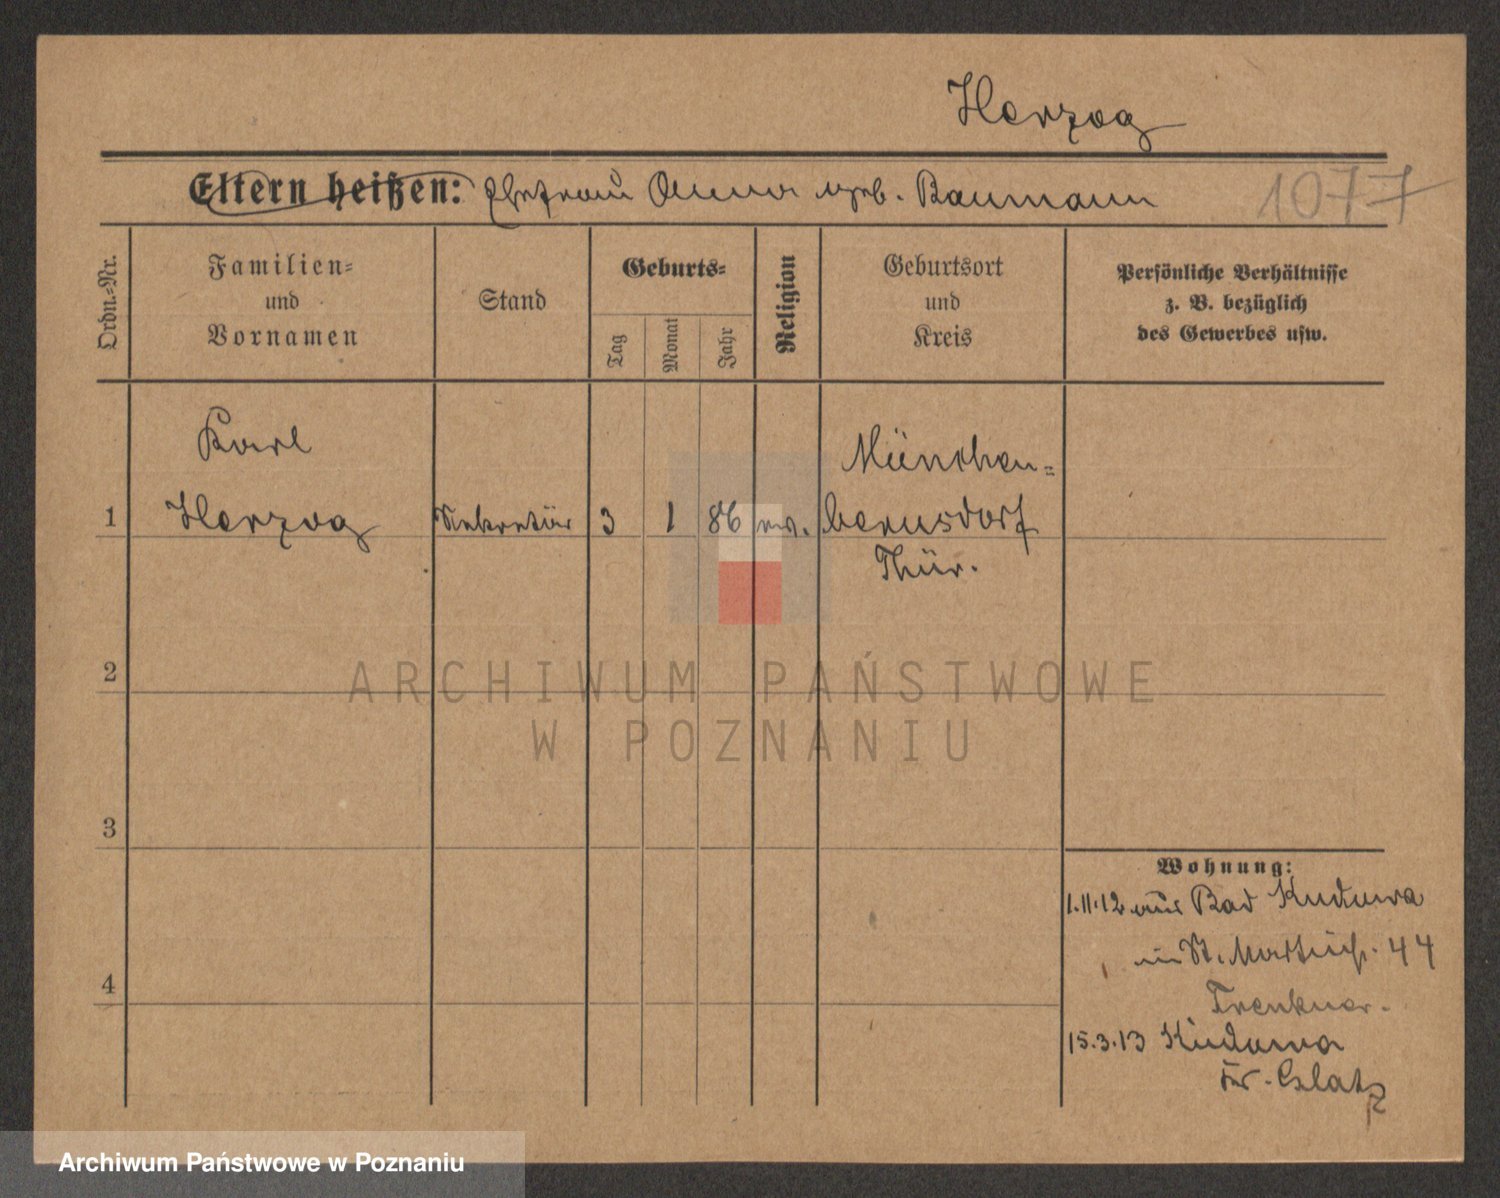 Herzog
Eltern heißen: Ehefrau Anna geb. Baumann 1077
Ordn.-Nr.
Familien-
und
Vornamen
Stand
Geburts-
Tag
Monat
Jahr
Religion
Geburtsort
und
Kreis
Persönliche Verhältnisse
z. B. bezüglich
des Gewerbes usw.
Karl
München-
1 Herzog Sekretär 3 1 86 ev. bernsdorf
Thür.
2
3
4
Wohnung:
1.11.12 aus Bad Kudowa
in St. Martinstr. 44
Trenkner.
15.3.13 Kudowa
Kr. Glatz
ARCHIWUM PAŃSTWOWE
W POZNANIU
Archiwum Państwowe w Poznaniu